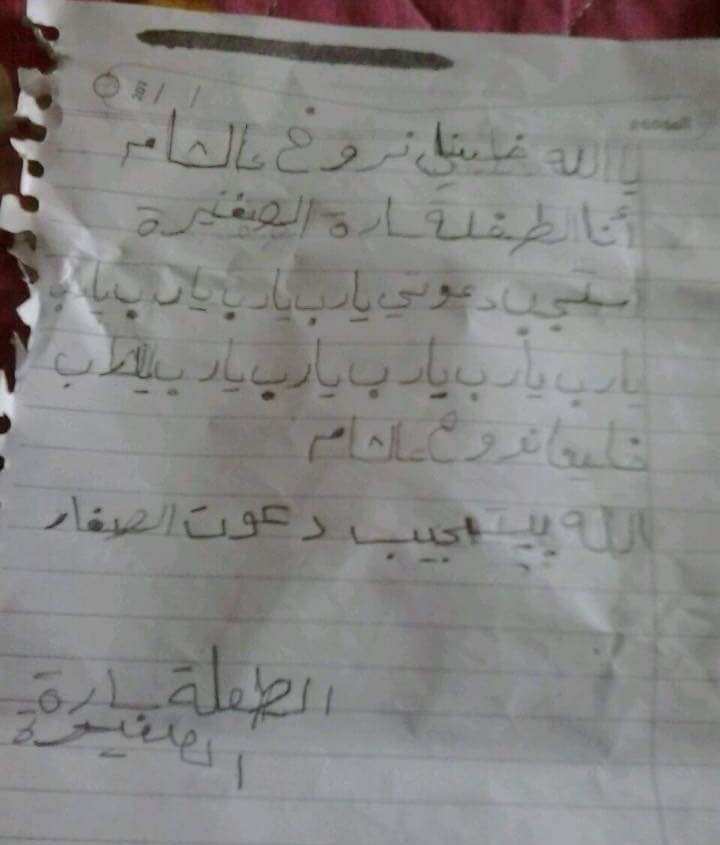 يا الله خليني نروح عالشام
أنا الطفلة سارة الصغيرة
استجب دعوتي يارب يارب يارب يارب
يارب يارب يارب يارب يارب يارب
خلينا نروح عالشام
الله يستجيب دعوت الصغار
الطفلة سارة
الصغيرة